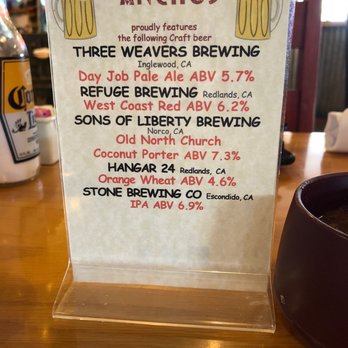 proudly features
the following Craft beer
THREE WEAVERS BREWING
Inglewood, CA
Day Job Pale Ale ABV 5.7%
REFUGE BREWING Redlands, CA
West Coast Red ABV 6.2%
SONS OF LIBERTY BREWING
Norco, CA
Old North Church
Coconut Porter ABV 7.3%
HANGAR 24 Redlands, CA
Orange Wheat ABV 4.6%
STONE BREWING CO Escondido, CA
IPA ABV 6.9%